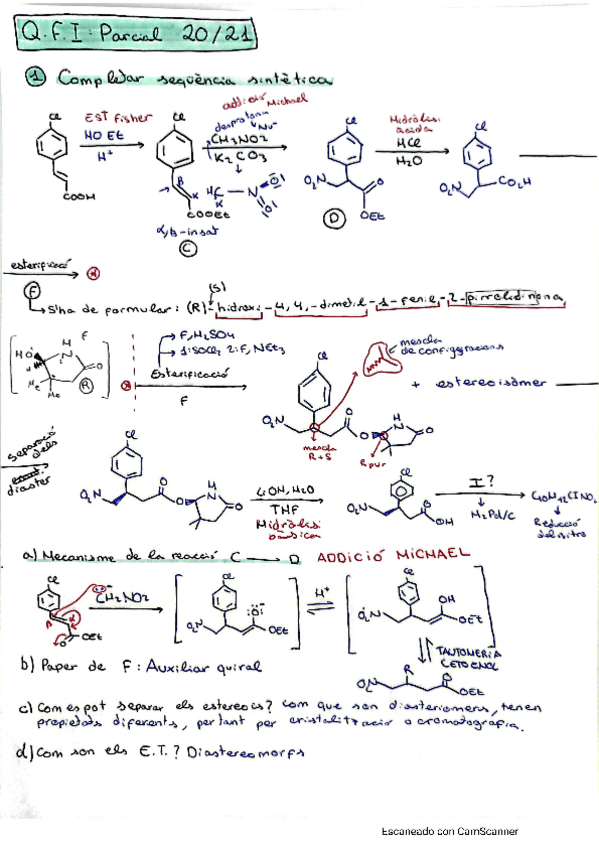 Q.F.I: Parcial 20/21
① Completar seqüència sintètica
Cl
EST Fisher
HO Et
H⁺
COOH
Cl
β
α
COOEt
α,β-insat
C
addició Michael
desprotona
Nu⁻
CH3NO2
K2CO3
Cl
O2N
O
OEt
D
Hidròlisi
àcida
HCl
H2O
Cl
O2N
CO2H
esterificació
F
S'ha de formular: (R)-hidroxi-4,4,-dimetil-1-fenil-2-pirrolidinona
(S)
F
HO
H
N
O
Me
Me
R
F, H2SO4
1: SOCl2 2: F, NEt3
Esterificació
F
Cl
O2N
O
O
H
N
O
mescla
R+S
R pur
mescla
de configuracions
+ estereoisòmer
separació
dels
diaster
Cl
O2N
O
O
H
N
O
LiOH, H2O
THF
Hidròlisi
bàsica
Cl
O2N
O
OH
I?
H2 Pd/C
C10H12ClNO2
Reducció
del nitro
a) Mecanisme de la reacció C → D ADDICIÓ MICHAEL
Cl
β
α
O
OEt
CH2NO2
Cl
O2N
OEt
H⁺
Cl
O2N
OH
OEt
TAUTOMERIA
CETOENOL
O2N
R
O
OEt
b) Paper de F: Auxiliar quiral
c) Com es pot separar els estereois? Com que son diasteriomers, tenen
propietats diferents, per tant per cristalització o cromatografia.
d) Com son els E.T.? Diastereomorfs
Escaneado con CamScanner